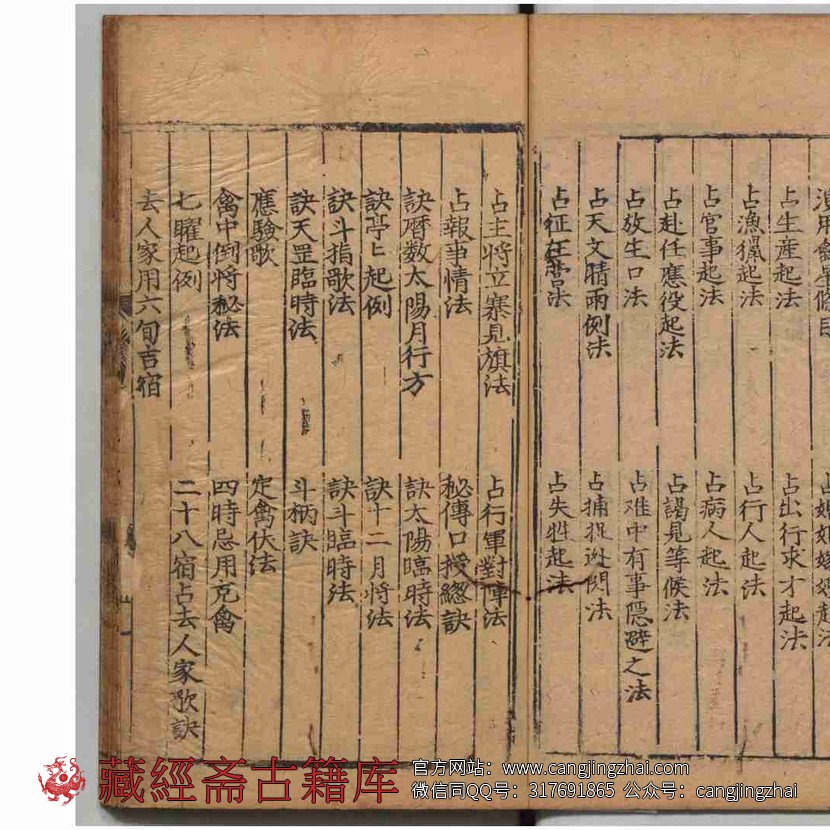 占生産起法
占出行求才起法
占漁獵起法
占行人起法
占官事起法
占病人起法
占赴任應役起法
占謁見等候法
占放生口法
占难中有事隠避之法
占天文晴雨例法
占捕捉逃閃法
占征
法
占失牲起法
占主将立寨見旗法
占行軍對陣法
占報事情法
秘傳口授總訣
訣曆数太陽月行方
訣太陽臨時法
訣亭亍起例
訣十二月将法
訣斗指歌法
訣斗臨時法
訣天罡臨時法
斗柄訣
應驗歌
定禽伏法
禽中倒将秘法
四時忌用克禽
七曜起例
二十八宿占去人家歌訣
去人家用六旬吉宿
藏經斋古籍库
官方网站：www.cangjingzhai.com
微信同QQ号：317691865 公众号：cangjingzhai